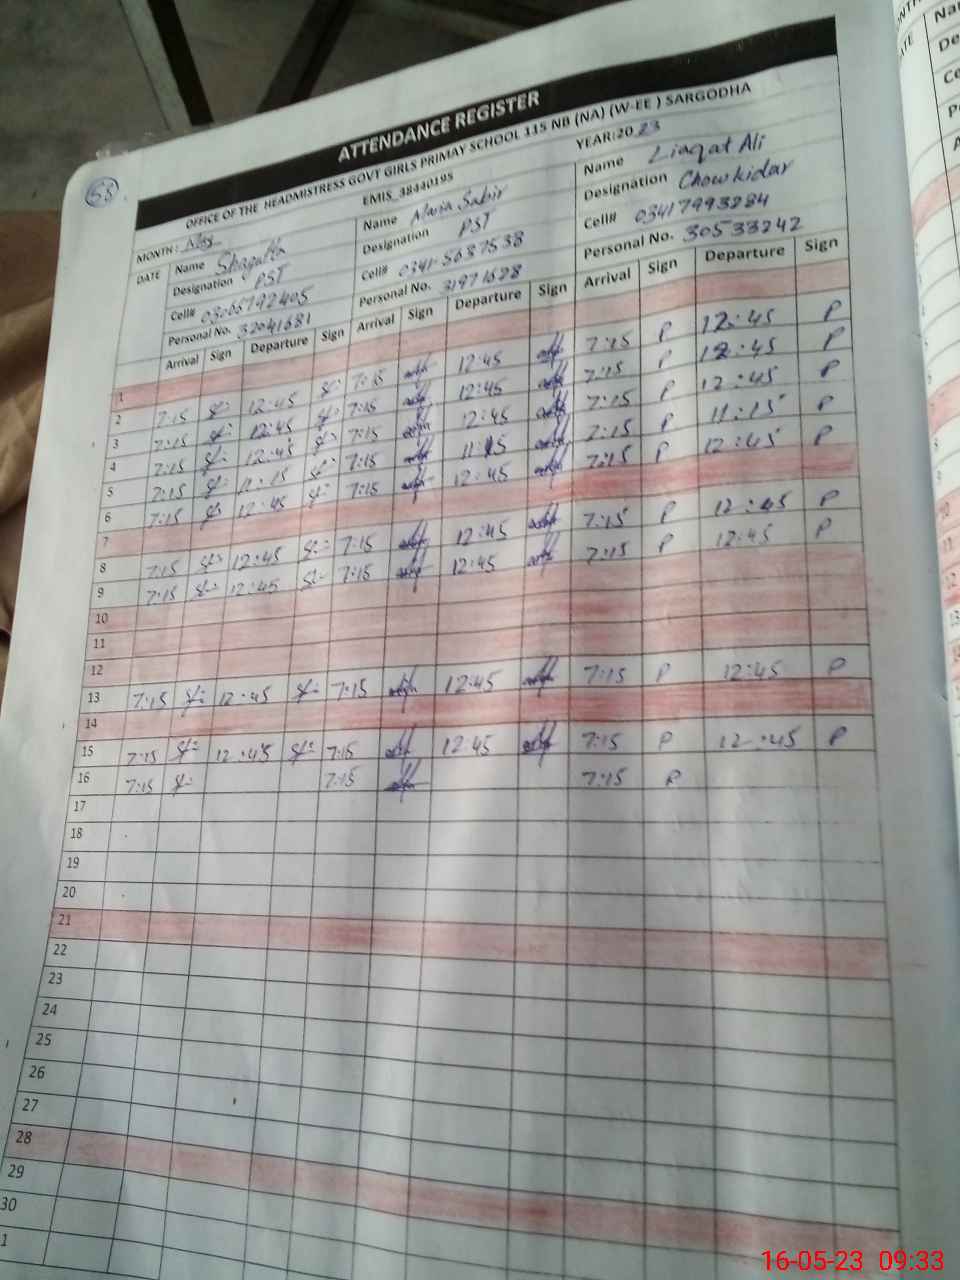 ATTENDANCE REGISTER
OFFICE OF THE HEADMISTRESS GOVT GIRLS PRIMAY SCHOOL 115 NB (NA) (W-EE ) SARGODHA
EMIS_38440195
58
MONTH: May
YEAR:2023
DATE Name Shagufta Name Maria Sabir Name Liaqat Ali
Designation PST Designation PST Designation Chowkidar
Cell# 03066792405 Cell# 0341-5687538 Cell# 03417993284
Personal No. 32041681 Personal No. 31971628 Personal No. 30533242
Arrival Sign Departure Sign Arrival Sign Departure Sign Arrival Sign Departure Sign
1
2 7:15 12:45 7:15 12:45 7:15 P 12:45 P
3 7:15 12:45 7:15 12:45 7:15 P 12:45 P
4 7:15 12:45 7:15 12:45 7:15 P 12:45 P
5 7:15 11:15 7:15 11:15 7:15 P 11:15 P
6 7:15 12:45 7:15 12:45 7:15 P 12:45 P
7
8 7:15 12:45 7:15 12:45 7:15 P 12:45 P
9 7:15 12:45 7:15 12:45 7:15 P 12:45 P
10
11
12
13 7:15 12:45 7:15 12:45 7:15 P 12:45 P
14
15 7:15 12:45 7:15 12:45 7:15 P 12:45 P
16 7:15 7:15 7:15 P
17
18
19
20
21
22
23
24
25
26
27
28
29
30
1
16-05-23 09:33